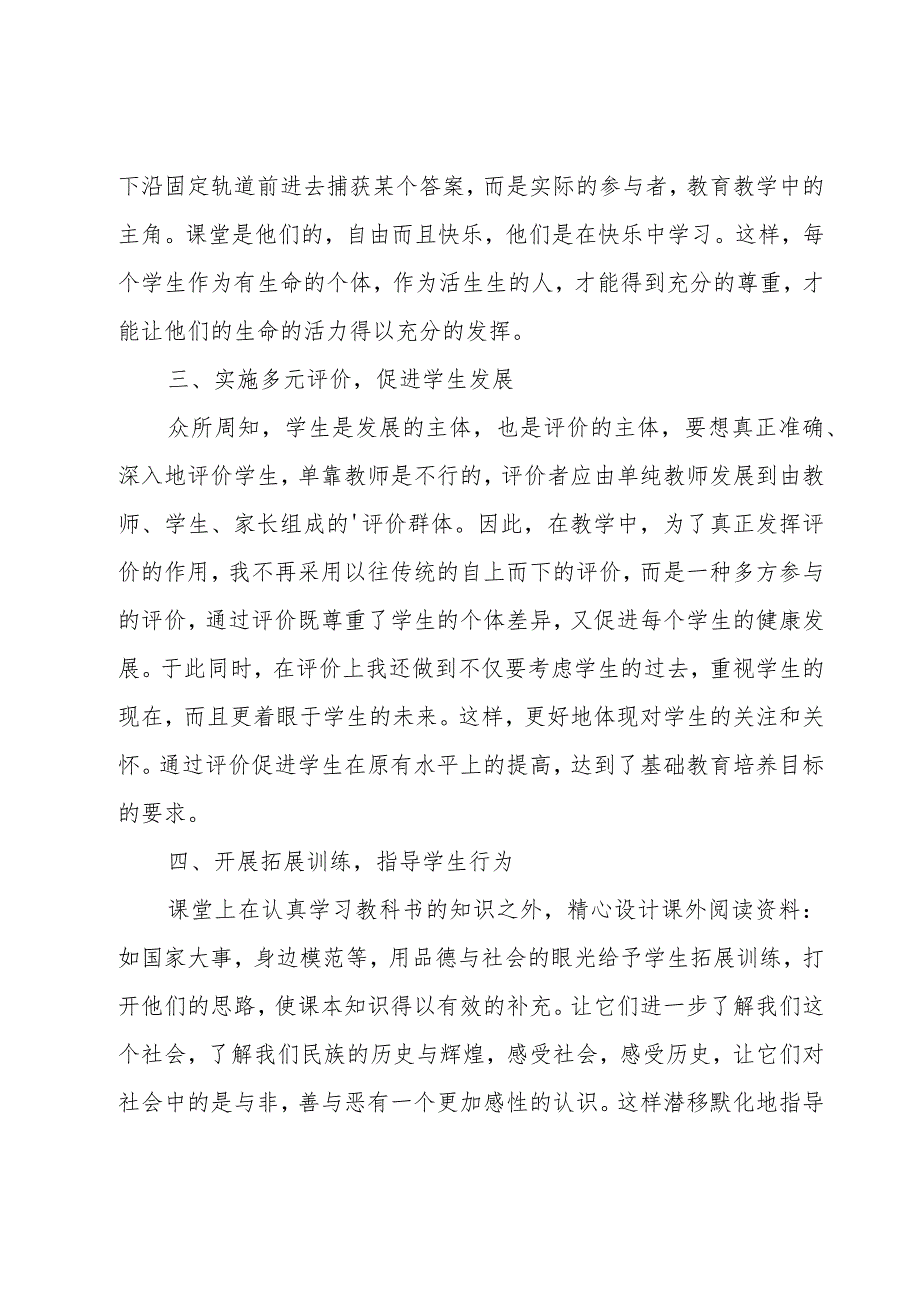 下沿固定轨道前进去捕获某个答案，而是实际的参与者，教育教学中的
主角。课堂是他们的，自由而且快乐，他们是在快乐中学习。这样，每
个学生作为有生命的个体，作为活生生的人，才能得到充分的尊重，才
能让他们的生命的活力得以充分的发挥。
三、实施多元评价，促进学生发展
众所周知，学生是发展的主体，也是评价的主体，要想真正准确、
深入地评价学生，单靠教师是不行的，评价者应由单纯教师发展到由教
师、学生、家长组成的'评价群体。因此，在教学中，为了真正发挥评
价的作用，我不再采用以往传统的自上而下的评价，而是一种多方参与
的评价，通过评价既尊重了学生的个体差异，又促进每个学生的健康发
展。于此同时，在评价上我还做到不仅要考虑学生的过去，重视学生的
现在，而且更着眼于学生的未来。这样，更好地体现对学生的关注和关
怀。通过评价促进学生在原有水平上的提高，达到了基础教育培养目标
的要求。
四、开展拓展训练，指导学生行为
课堂上在认真学习教科书的知识之外，精心设计课外阅读资料：
如国家大事，身边模范等，用品德与社会的眼光给予学生拓展训练，打
开他们的思路，使课本知识得以有效的补充。让它们进一步了解我们这
个社会，了解我们民族的历史与辉煌，感受社会，感受历史，让它们对
社会中的是与非，善与恶有一个更加感性的认识。这样潜移默化地指导